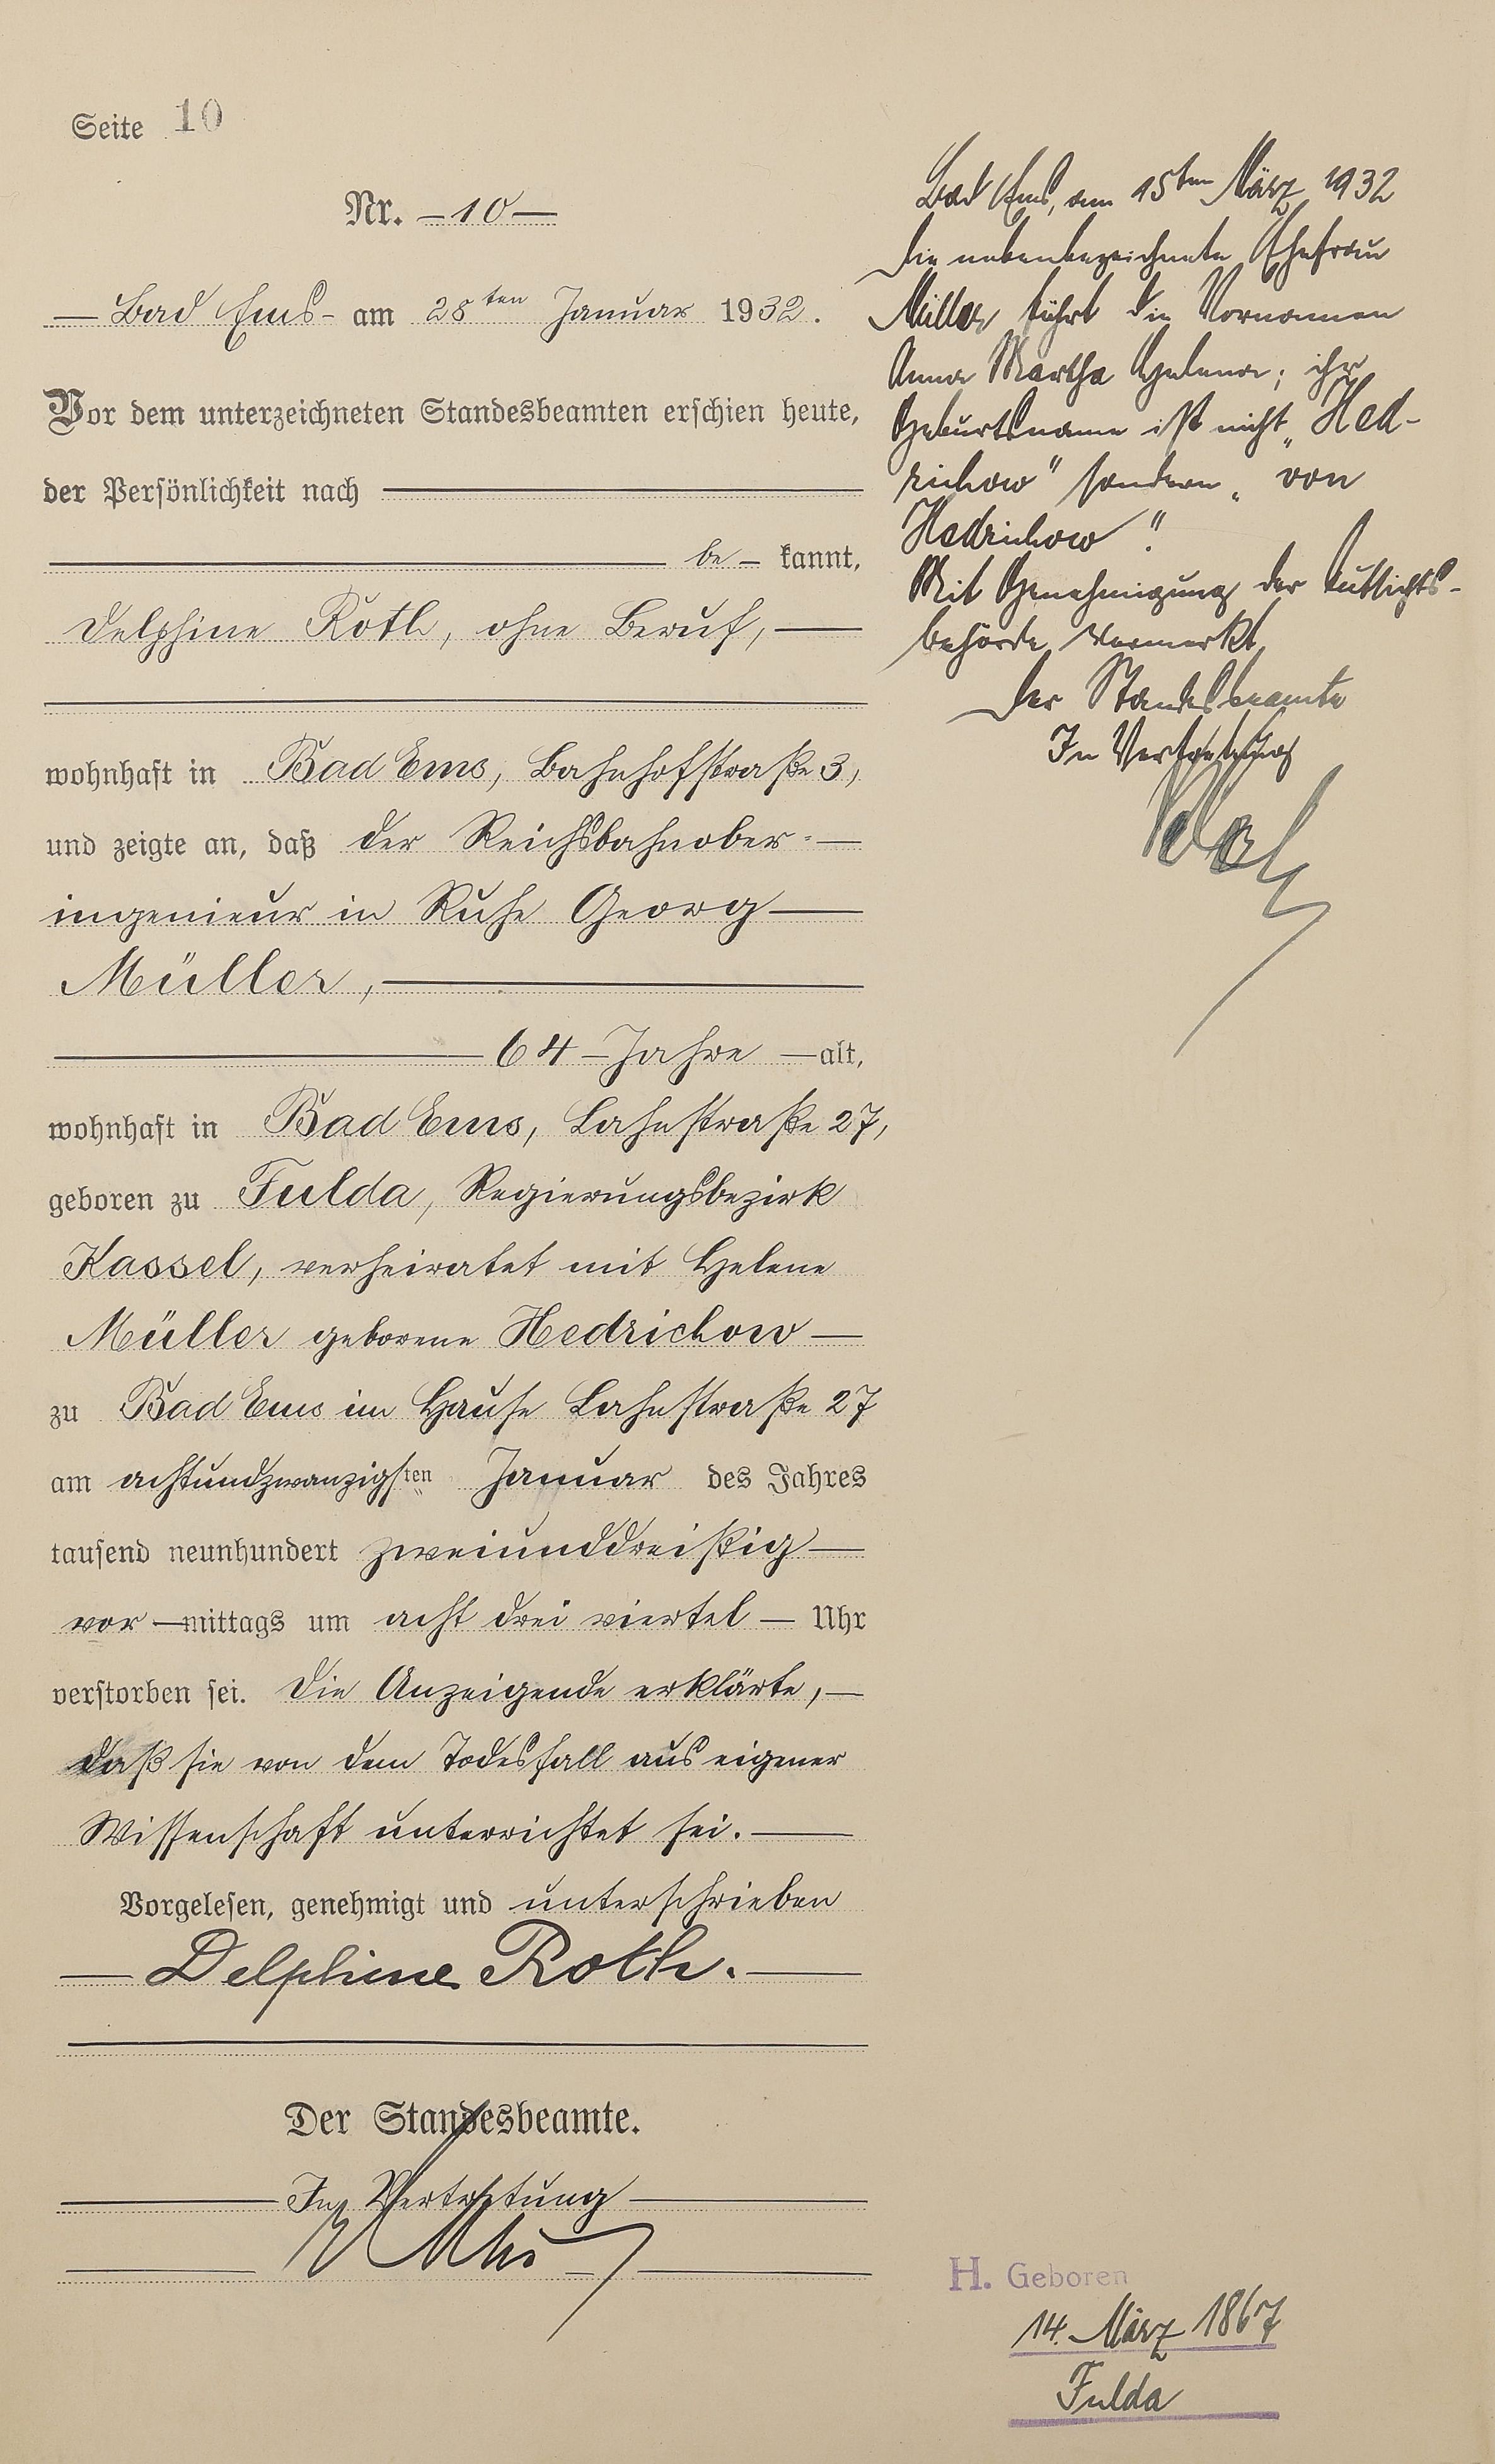 Seite 10
Nr. 10
Bad Ems am 28ten Januar 1932.
Vor dem unterzeichneten Standesbeamten erschien heute,
der Persönlichkeit nach
be kannt,
Delphine Roth, ohne Beruf,
wohnhaft in Bad Ems, Bahnhofstraße 3,
und zeigte an, daß der Reichsbahnober-
ingenieur in Ruhe Georg
Müller,
64 Jahre alt,
wohnhaft in Bad Ems, Lahnstraße 27,
geboren zu Fulda, Regierungsbezirk
Kassel, verheiratet mit Helene
Müller geborene Hedrichow
zu Bad Ems im Hause Lahnstraße 27
am achtundzwanzigsten Januar des Jahres
tausend neunhundert zweiunddreißig
vormittags um acht drei viertel Uhr
verstorben sei. Die Anzeigende erklärte,
daß sie von dem Todesfall aus eigener
Wissenschaft unterrichtet sei.
Vorgelesen, genehmigt und unterschrieben
Delphine Roth.
Der Standesbeamte.
In Vertretung
Bad Ems, am 15ten März 1932
Die nebenbezeichnete Ehefrau
Müller führt die Vornamen
Anna Martha Helena; ihr
Geburtsname ist nicht „Hed-
richow" sondern „von
Hedrichow".
Mit Genehmigung der Aufsichts-
behörde vermerkt
Der Standesbeamte
In Vertretung
H. Geboren
14. März 1867
Fulda